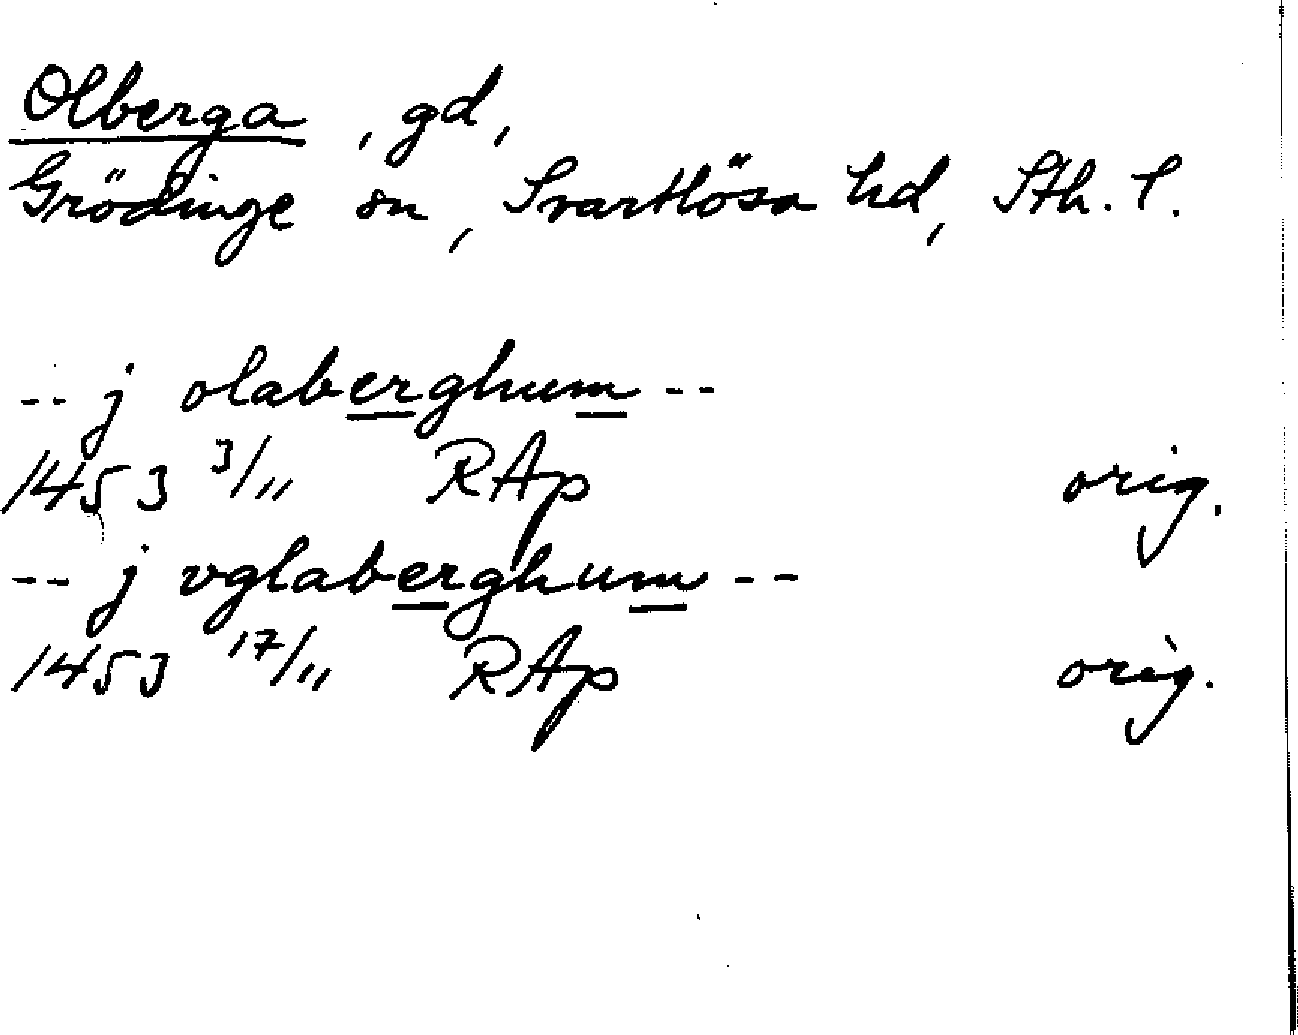 Olberga, gd,
Grödinge sn, Svartlösa hd, Sth. l.
-- j olaberghum --
1453 3/11 RAp orig.
-- j vglaberghum --
1453 17/11 RAp orig.